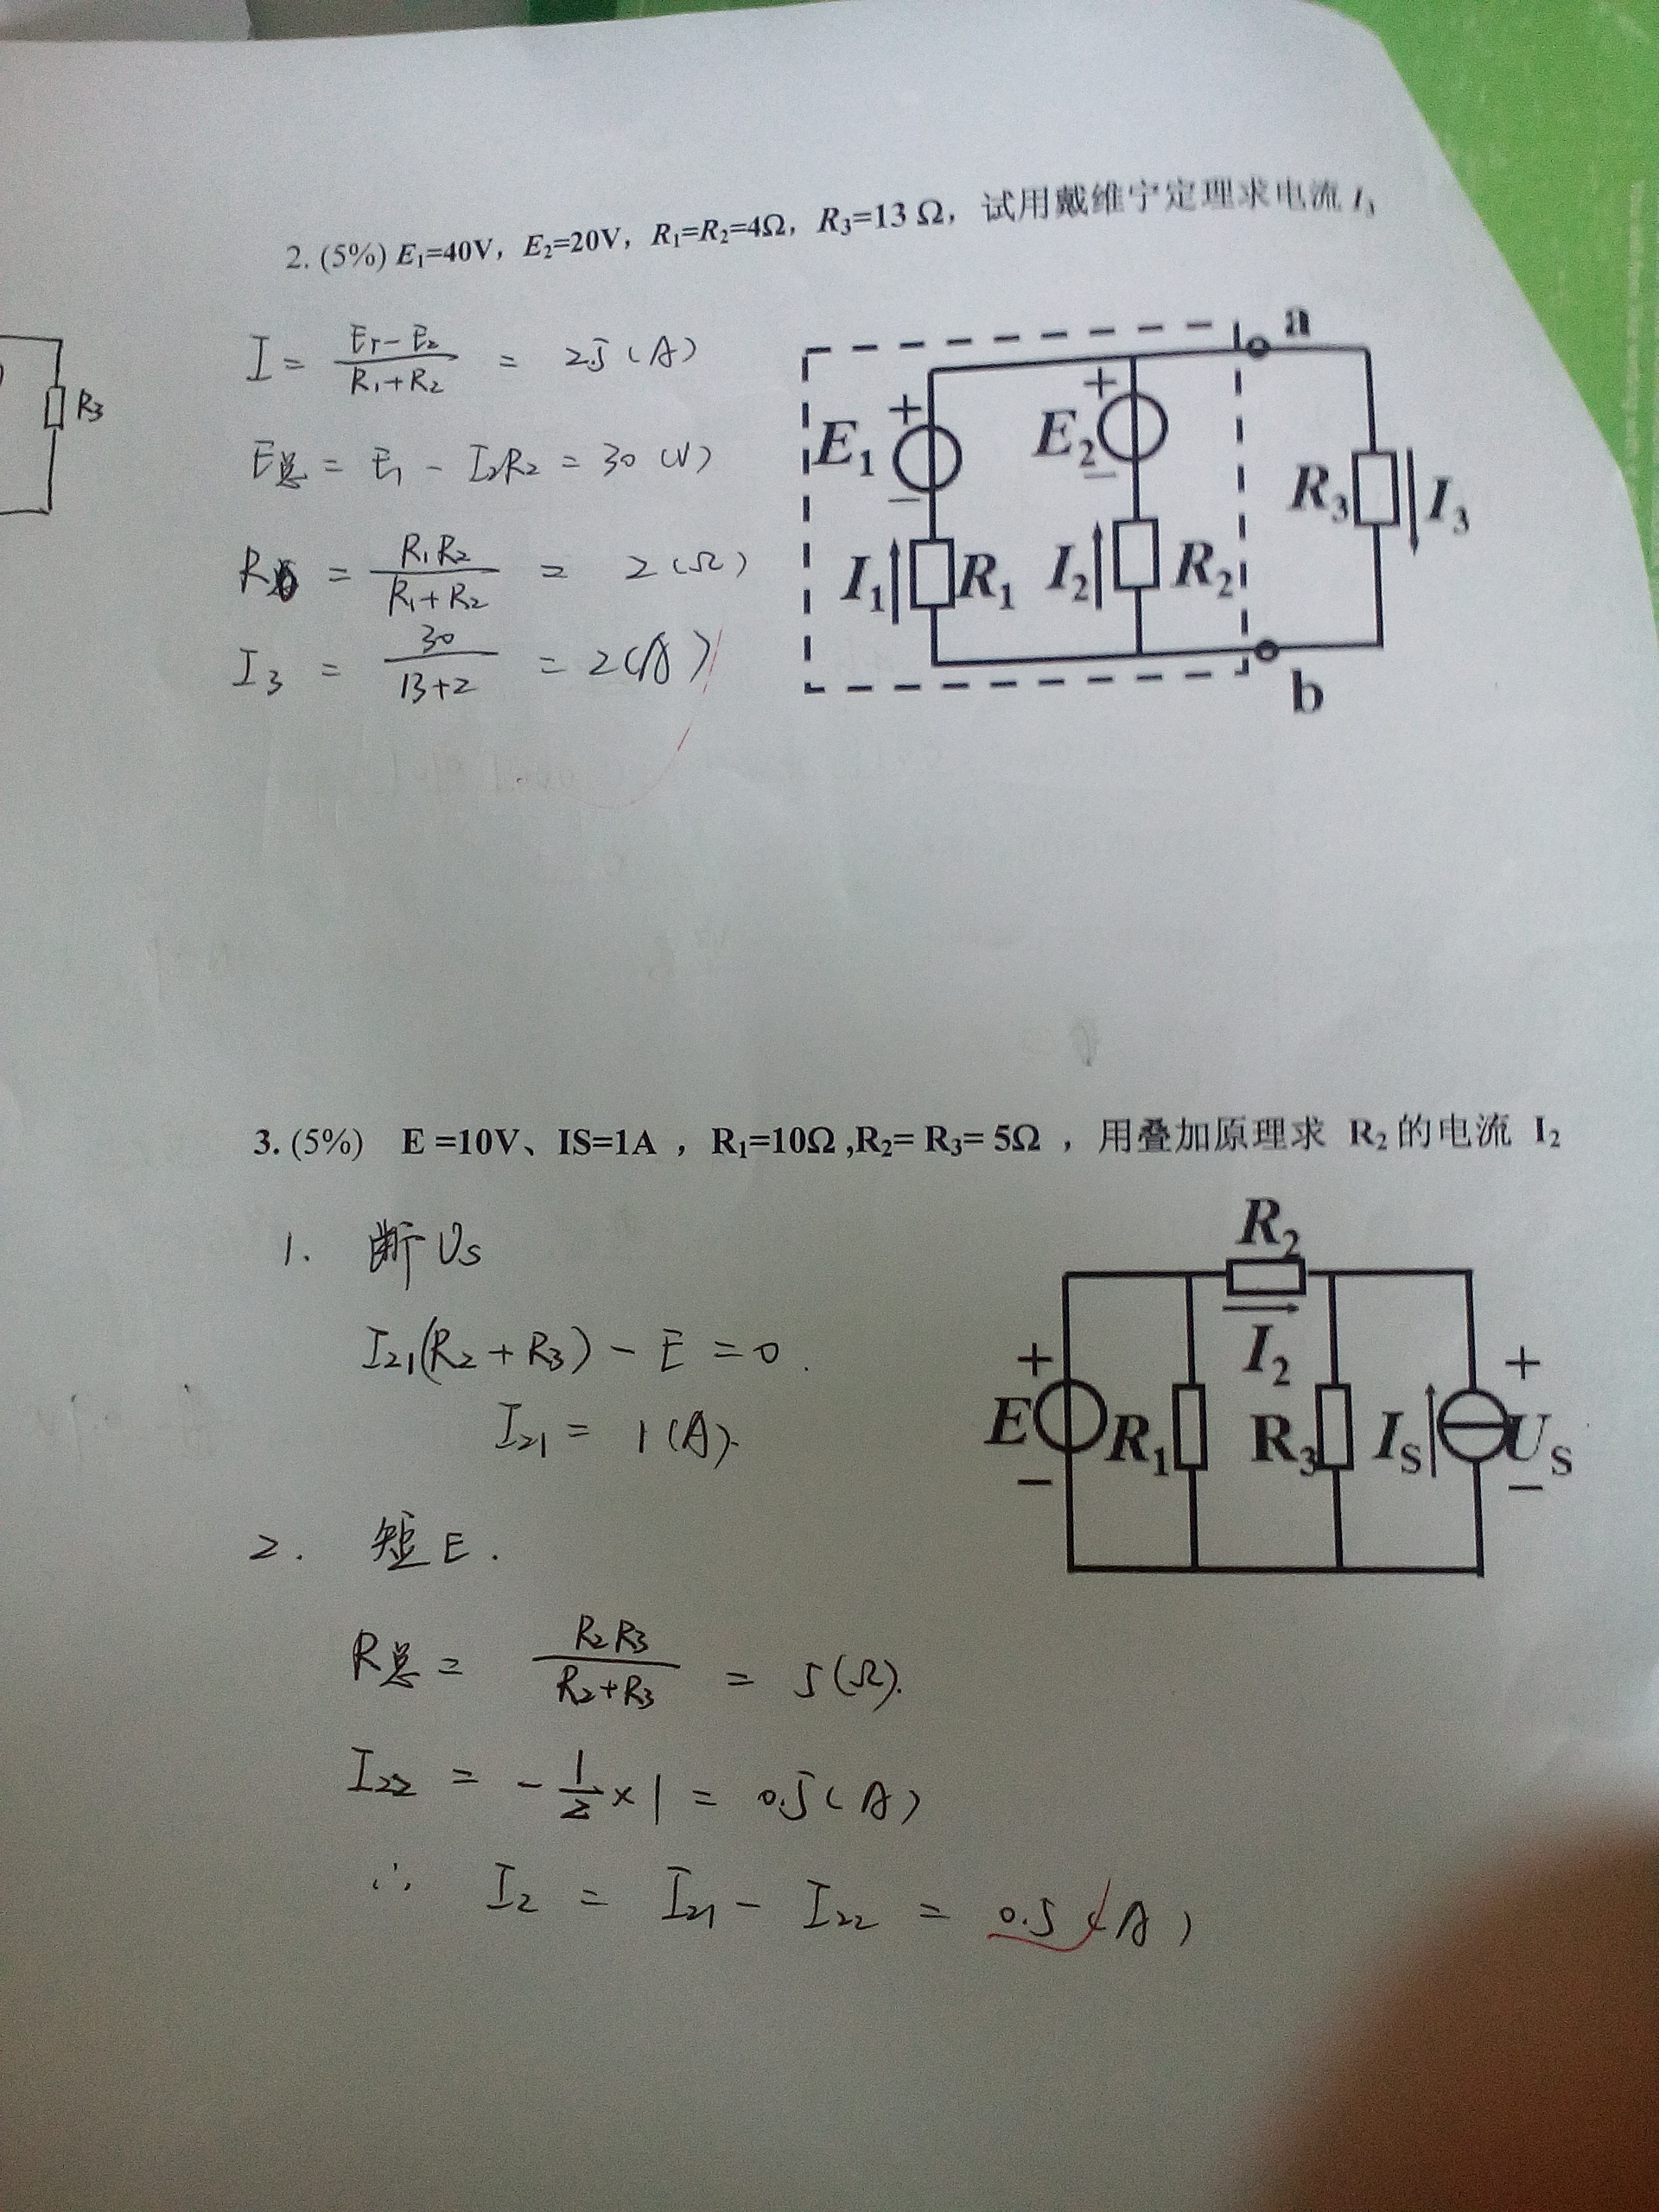 2. (5%) E₁=40V，E₂=20V，R₁=R₂=4Ω，R₃=13 Ω，试用戴维宁定理求电流 I₃
I = (E₁-E₂)/(R₁+R₂) = 2.5 (A)
E总 = E₁ - I₂R₂ = 30 (V)
R₀ = R₁R₂/(R₁+R₂) = 2 (Ω)
I₃ = 30/(13+2) = 2 (A)
R₃
a
E₁
+
−
E₂
+
−
R₃
I₃
I₁
R₁
I₂
R₂
b
3. (5%) E =10V、IS=1A ，R₁=10Ω ,R₂= R₃= 5Ω ，用叠加原理求 R₂ 的电流 I₂
1. 断Us
I₂₁(R₂ + R₃) - E = 0.
I₂₁ = 1 (A).
2. 短E.
R总 = R₂R₃/(R₂+R₃) = 5 (Ω).
I₂₂ = - 1/2 × 1 = 0.5 (A)
∴ I₂ = I₂₁ - I₂₂ = 0.5 (A)
R₂
I₂
+
E
−
R₁
R₃
I_S
+
U_S
−